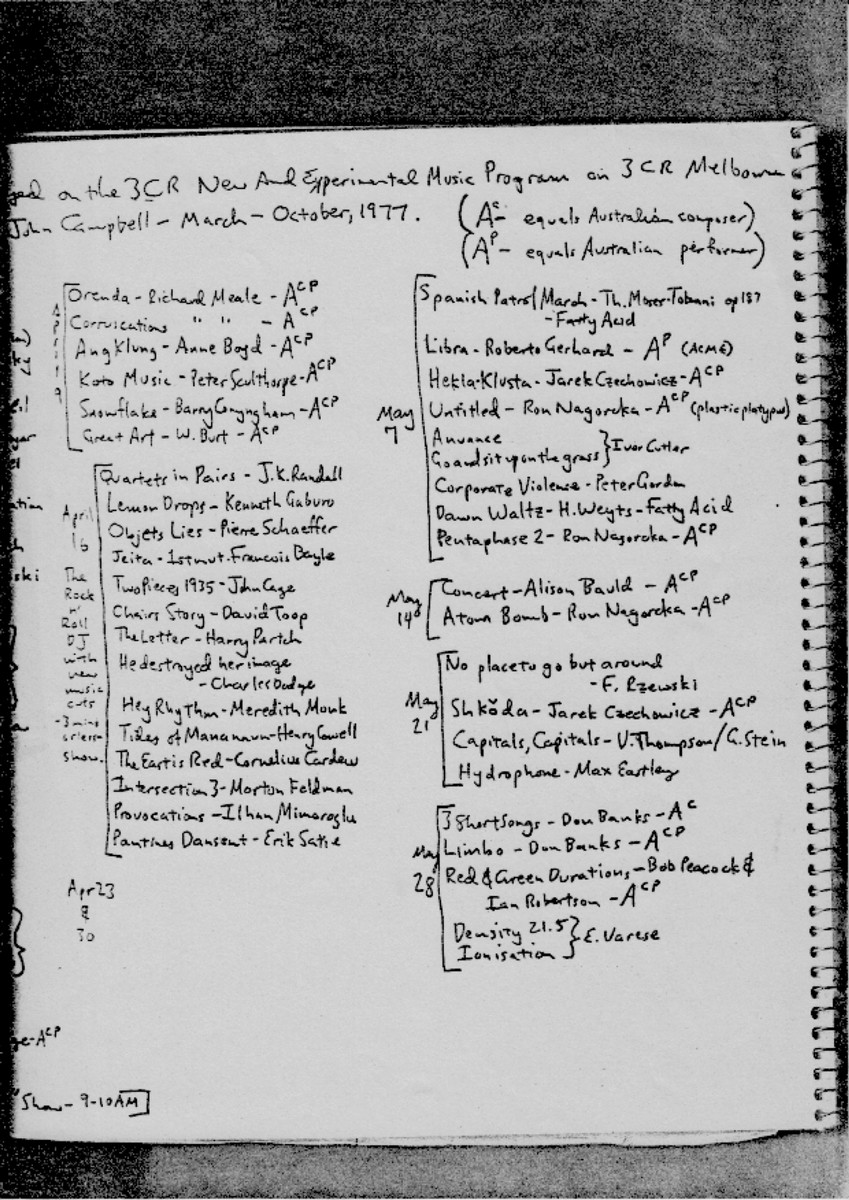 ged on the 3CR New And Experimental Music Program on 3CR Melbourne
John Campbell - March - October, 1977. (Aᶜ- equals Australian composer)
(Aᴾ- equals Australian performer)
April 9
Orenda - Richard Meale - Aᶜᴾ
Corruscations " " - Aᶜᴾ
AngKlung - Anne Boyd - Aᶜᴾ
Koto Music - Peter Sculthorpe - Aᶜᴾ
Snowflake - Barry Conyngham - Aᶜᴾ
Great Art - W. Burt - Aᶜᴾ
April 16
The Rock n' Roll DJ with new music cuts - 3 mins or less - show.
Quartets in Pairs - J.K. Randall
Lemon Drops - Kenneth Gaburo
Objets Lies - Pierre Schaeffer
Jeita - 1st mvt. Francois Bayle
Two Pieces 1935 - John Cage
Chairs Story - David Toop
The Letter - Harry Partch
He destroyed her image
- Charles Dodge
Hey Rhythm - Meredith Monk
Tides of Manannun - Henry Cowell
The East is Red - Cornelius Cardew
Intersection 3 - Morton Feldman
Provocations - Ilhan Mimaroglu
Pantines Dansent - Erik Satie
Apr 23
&
30
ge - Aᶜᴾ
"Show - 9-10AM]
May 7
Spanish Patrol March - Th. Moser-Tobani op 187
- Fatty Acid
Libra - Roberto Gerhard - Aᴾ (ACME)
Hekla-Klusta - Jarek Czechowicz - Aᶜᴾ
Untitled - Ron Nagorcka - Aᶜᴾ (plastic platypus)
Anuance
Go and sit upon the grass } Ivor Cutler
Corporate Violense - Peter Gordon
Dawn Waltz - H. Weyts - Fatty Acid
Pentaphase 2 - Ron Nagorcka - Aᶜᴾ
May 14
Concert - Alison Bauld - Aᶜᴾ
Atom Bomb - Ron Nagorcka - Aᶜᴾ
May 21
No place to go but around
- F. Rzewski
Shkŏda - Jarek Czechowicz - Aᶜᴾ
Capitals, Capitals - V. Thompson / G. Stein
Hydrophone - Max Eastley
May 28
3 Short Songs - Don Banks - Aᶜ
Limbo - Don Banks - Aᶜᴾ
Red & Green Durations - Bob Peacock &
Ian Robertson - Aᶜᴾ
Density 21.5
Ionisation } E. Varese